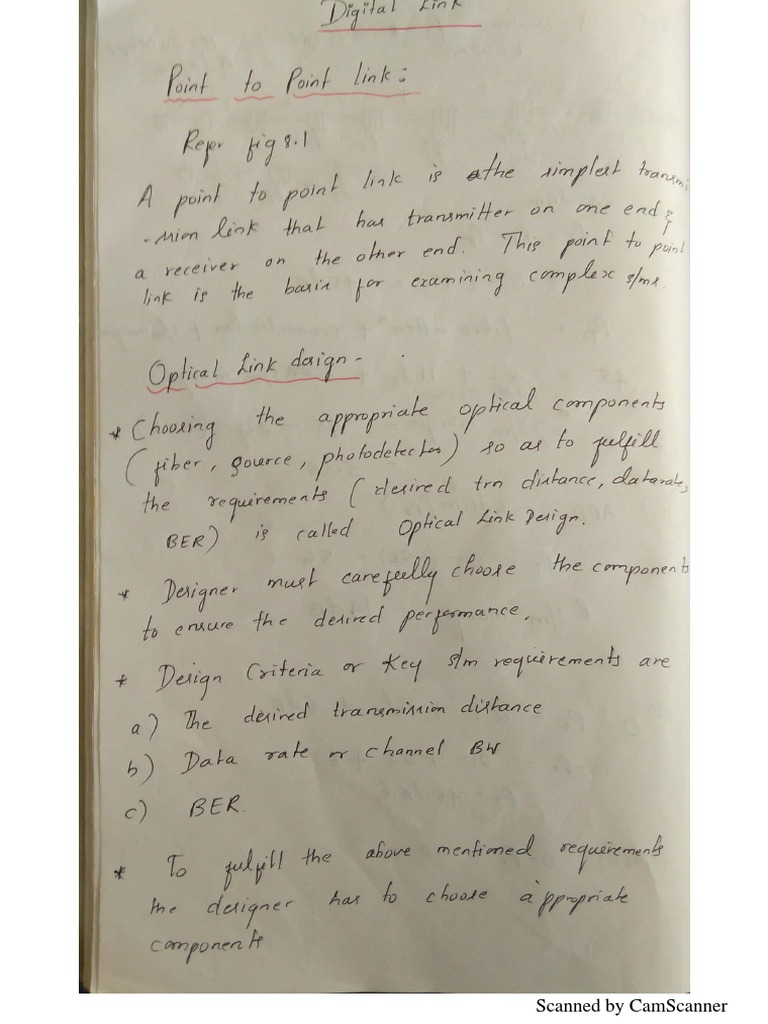 Digital Link
Point to Point link:
Repr fig 8.1
A point to point link is the simplest transmi
-ssion link that has transmitter on one end &
a receiver on the other end. This point to point
link is the basis for examining complex s/ms.
Optical Link design -
* Choosing the appropriate optical components
(fiber, source, photodetector) so as to fulfill
the requirements (desired trn distance, datarate,
BER) is called Optical Link Design.
* Designer must carefeelly choose the components
to ensure the desired performance.
* Design Criteria or Key s/m requirements are
a) The desired transmission distance
b) Data rate or channel BW
c) BER.
* To fulfill the above mentioned requirements
the designer has to choose appropriate
components
Scanned by CamScanner